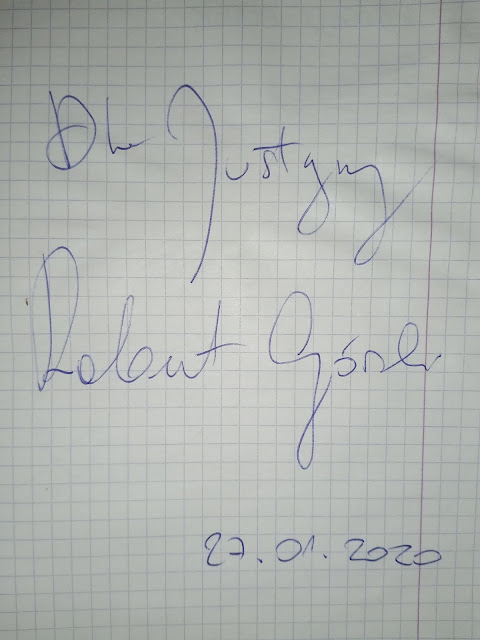 Dla Justyny
Robert Górski
27.01.2020